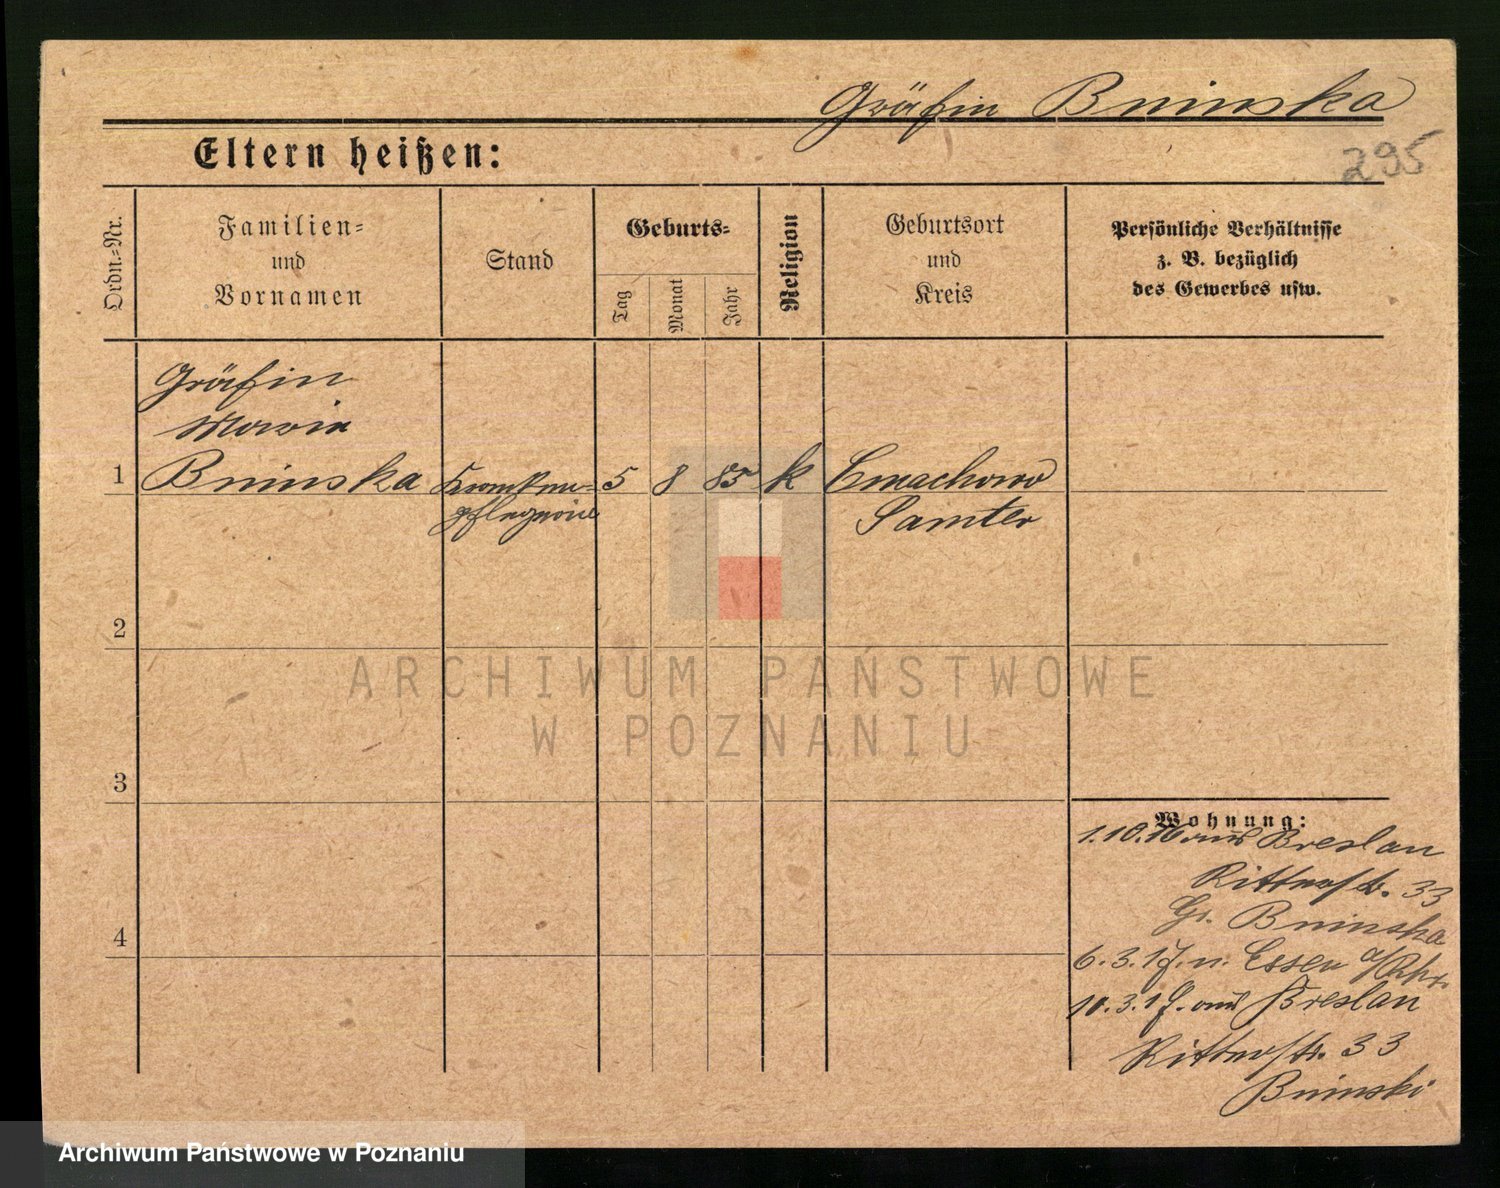 Gräfin Bninska
295
Eltern heißen:
Ordn.-Nr.
Familien-
und
Vornamen
Stand
Geburts-
Tag
Monat
Jahr
Religion
Geburtsort
und
Kreis
Persönliche Verhältnisse
z. B. bezüglich
des Gewerbes usw.
Gräfin
Maria
1 Bninska Kranken- 5 8 85 k Cmachowo
pflegerin Samter
2
3
4
Wohnung:
1.10.16 aus Breslau
Ritterstr. 33
Gr. Bninska
6.3.17. n. Essen a/Rhr.
10.3.17. aus Breslau
Ritterstr. 33
Bninski
ARCHIWUM PAŃSTWOWE
W POZNANIU
Archiwum Państwowe w Poznaniu